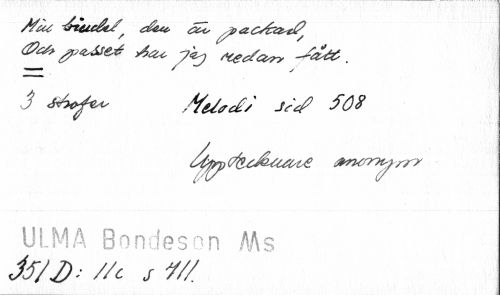 Min bindel, den är packad,
Och passet har jag redan fått.
=
3 strofer Melodi sid 508
Upptecknare anonym
ULMA Bondeson Ms
351 D: 11c s 411.